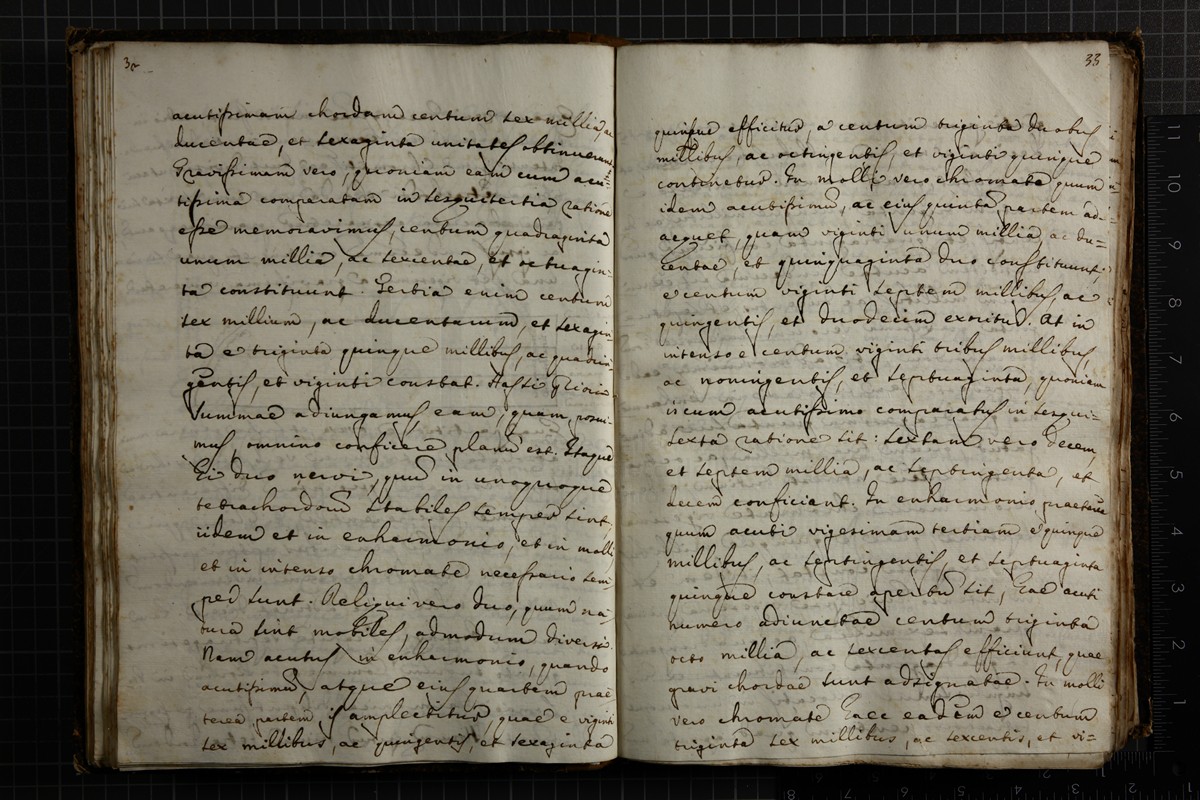 32
acutissimam chordam centum sex millia, ac
ducentae, et sexaginta unitates obtinuerant.
Gravissimam vero, quoniam eam cum acu-
tissima comparatam in sesquitertia ratione
esse memoravimus, centum quadraginta
unum millia, ac sexcentae, et octuagin-
ta constituunt. Tertia enim centum
sex millium, ac ducentarum, et sexagin-
ta e triginta quinque millibus, ac quadrin-
gentis, et viginti constat. Has si
summae adiungamus eam, quam posui-
mus, omnino conficere planum est. Itaque
Hi duo nervi, qui in unoquoque
tetrachordum stabiles semper sint,
iidem et in enharmonio, et in molli
et in intenso chromate necessario sem
per sunt. Reliqui vero duo, quum na
tura sint mobiles, admodum diversi.
Nam acutus in enharmonio, quando
acutissimum, atque eius quartam prae
terea partem, is amplectitur, quae e viginti
sex millibus, ac quingentis, et sexaginta
33
quinque efficitur, a centum triginta duobus
millibus, ac octingentis, et viginti quinque
continetur. In molli vero chromate quum
idem acutissimum, ac eius quintam partem ad-
aequet, quam viginti unum millia, ac du-
centae, et quinquaginta duo constituunt,
e centum viginti septem millibus, ac
quingentis, et duodecim exoritur. At in
intenso e centum viginti tribus millibus
ac noningentis, et septuaginta, quoniam
is cum acutissimo comparatus in sesqui-
sexta ratione sit: sextam vero decem
et septem millia, ac septingenta, et
decem conficiant. In enharmonio praeterea
quum acuti vigesimam tertiam e quinque
millibus, ac septingentis, et septuaginta
quinque constare apertum sit, Hae acuti
numero adiunctae centum triginta
octo millia, ac sexcentas efficiunt, quae
gravi chordae sunt adsignatae. In molli
vero chromate Haec eadem e centum
triginta sex millibus, ac sexcentis, et vi-